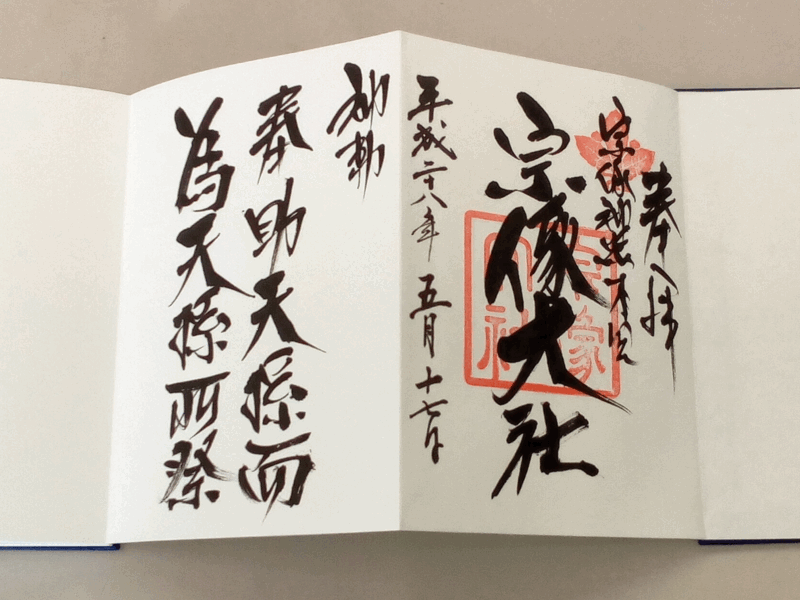 奉拝
宗像神
宗像大社
宗像
大社
平成二十八年 五月十七日
神勅
奉助天孫而
為天孫所祭